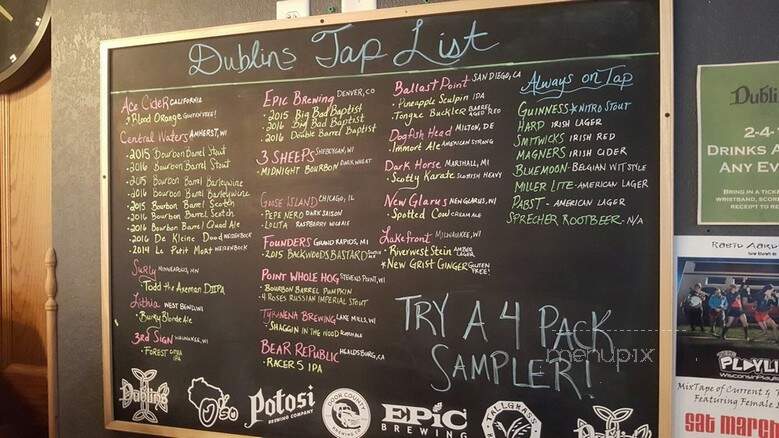 Dublins Tap List
Ace Cider CALIFORNIA
• Blood Orange GLUTEN FREE!
Central Waters AMHERST, WI
• 2015 Bourbon Barrel Stout
• 2016 Bourbon Barrel Stout
• 2015 Bourbon Barrel Barleywine
• 2016 Bourbon Barrel Barleywine
• 2015 Bourbon Barrel Scotch
• 2016 Bourbon Barrel Scotch
• 2016 Bourbon Barrel Quad Ale
• 2016 De Kleine Dood WEIZENBOCK
• 2014 Le Petit Mort WEIZENBOCK
Surly MINNEAPOLIS, MN
• Todd the Axeman DIIPA
Lithia WEST BEND, WI
• Burky Blonde Ale
3rd Sign MILWAUKEE, WI
• FOREST CITRA IPA
EPIC Brewing DENVER, CO
• 2015 Big Bad Baptist
• 2016 Big Bad Baptist
• 2016 Double Barrel Baptist
3 SHEEPS SHEBOYGAN, WI
• MIDNIGHT BOURBON DARK WHEAT
GOOSE ISLAND CHICAGO, IL
• PEPE NERO DARK SAISON
• LOLITA RASPBERRY WILD ALE
FOUNDERS GRAND RAPIDS, MI
• 2015 BACKWOODS BASTARD
POINT WHOLE HOG STEVENS POINT, WI
• BOURBON BARREL PUMPKIN
• 4 ROSES RUSSIAN IMPERIAL STOUT
TYRANENA BREWING LAKE MILLS, WI
• SHAGGIN IN THE WOOD
BEAR REPUBLIC HEALDSBURG, CA
• RACER 5 IPA
BALLAST POINT SAN DIEGO, CA
• Pineapple Sculpin IPA
• Tongue Buckler BARREL AGED RED
Dogfish Head MILTON, DE
• Immort Ale AMERICAN STRONG
Dark Horse MARSHALL, MI
• Scotty Karate SCOTTISH HEAVY
New Glarus NEW GLARUS, WI
• Spotted Cow CREAM ALE
Lakefront MILWAUKEE, WI
• Riverwest Stein AMBER LAGER
* New Grist Ginger GLUTEN FREE!
Always on Tap
GUINNESS * NITRO STOUT
HARP IRISH LAGER
SMITWICKS IRISH RED
MAGNERS IRISH CIDER
BLUEMOON - BELGIAN WIT STYLE
MILLER LITE - AMERICAN LAGER
PABST - AMERICAN LAGER
SPRECHER ROOTBEER - N/A
TRY A 4 PACK
SAMPLER!
menupix
Dublins
Potosi
BREWING COMPANY
DOOR COUNTY
BREWING CO.
EPIC
BREWING
TALLGRASS
Dublins
Dublin
2-4-
DRINKS A
ANY EVE
BRING IN A TICKE
WRISTBAND, SCORE
RECEIPT TO RE
PLAYLI
MixTape of Current &
Featuring Female
Sat March